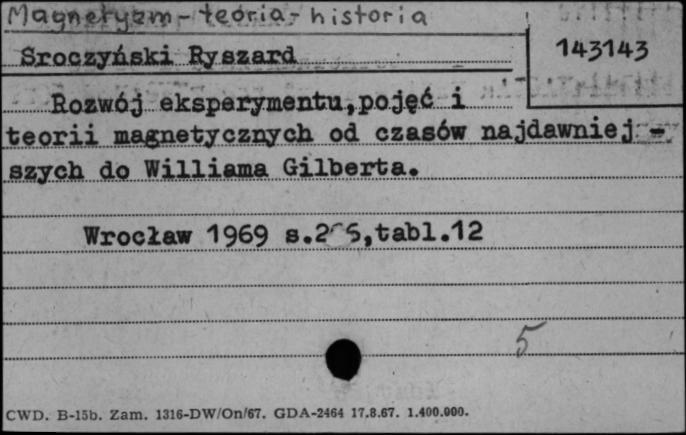 Magnetyzm - teoria - historia
Sroczyński Ryszard
143143
Rozwój eksperymentu, pojęć i
teorii magnetycznych od czasów najdawniej -
szych do Williama Gilberta.
Wrocław 1969 tabl.12
5
CWD. B-15b. Zam. 1316-DW/On/67. GDA-2464 17.8.67. 1.400.000.